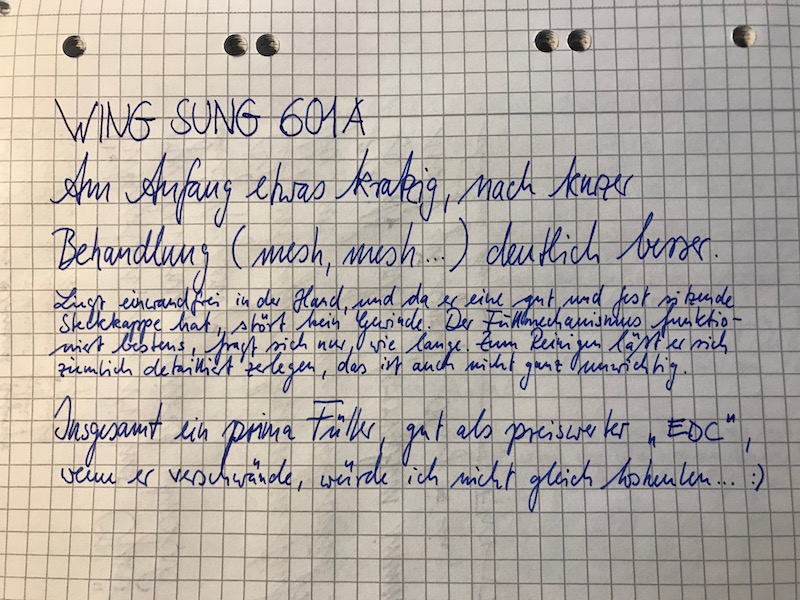 WING SUNG 601A
Am Anfang etwas kratzig, nach kurzer
Behandlung (mesh, mesh...) deutlich besser.
Liegt einwandfrei in der Hand, und da er eine gut und fest sitzende
Steckkappe hat, stört kein Gewinde. Der Füllmechanismus funktio-
niert bestens, fragt sich nur, wie lange. Zum Reinigen läßt er sich
ziemlich detailliert zerlegen, das ist auch nicht ganz unwichtig.
Insgesamt ein prima Füller, gut als preiswerter „EDC",
wenn er verschwände, würde ich nicht gleich losheulen... :)